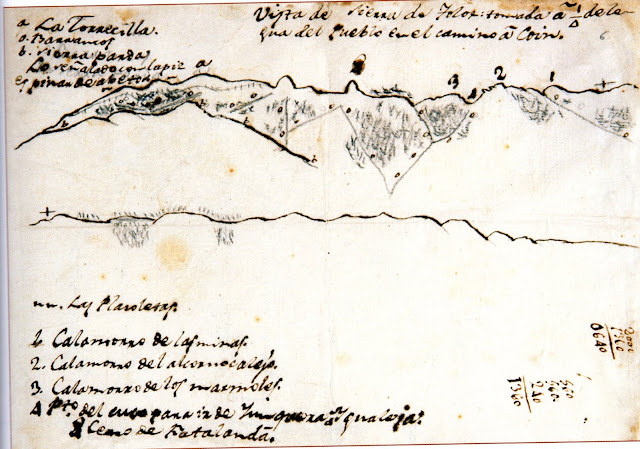 a La Torrecilla.
o. Barrancos
b. Sierra parda
Lo señalado con lapiz
es pinar de abetos
Vista de Sierra de Tolox: tomada à 1/2 de le-
gua del Pueblo en el camino à Coin.
6
a
3
2
1
4
+
b
b
+
nn. Las Plazoletas.
1. Calamorro de las minas.
2. Calamorro del alcornocalejo.
3. Calamorro de los marmoles.
4 Pto del para ir de Yunquera à Ygualeja.
Cerro de Fatalandá.
2000
1360
0640
560
560
240
1360